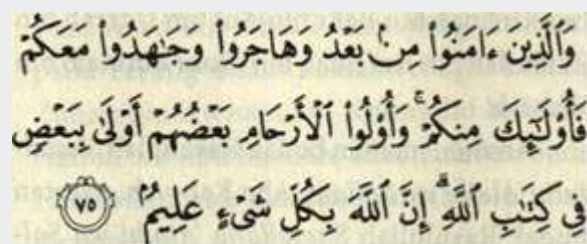 وَٱلَّذِينَ ءَامَنُوا۟ مِنۢ بَعْدُ وَهَاجَرُوا۟ وَجَـٰهَدُوا۟ مَعَكُمْ
فَأُو۟لَـٰٓئِكَ مِنكُمْ ۚ وَأُو۟لُوا۟ ٱلْأَرْحَامِ بَعْضُهُمْ أَوْلَىٰ بِبَعْضٍ
فِى كِتَـٰبِ ٱللَّهِ ۗ إِنَّ ٱللَّهَ بِكُلِّ شَىْءٍ عَلِيمٌۢ ٧٥